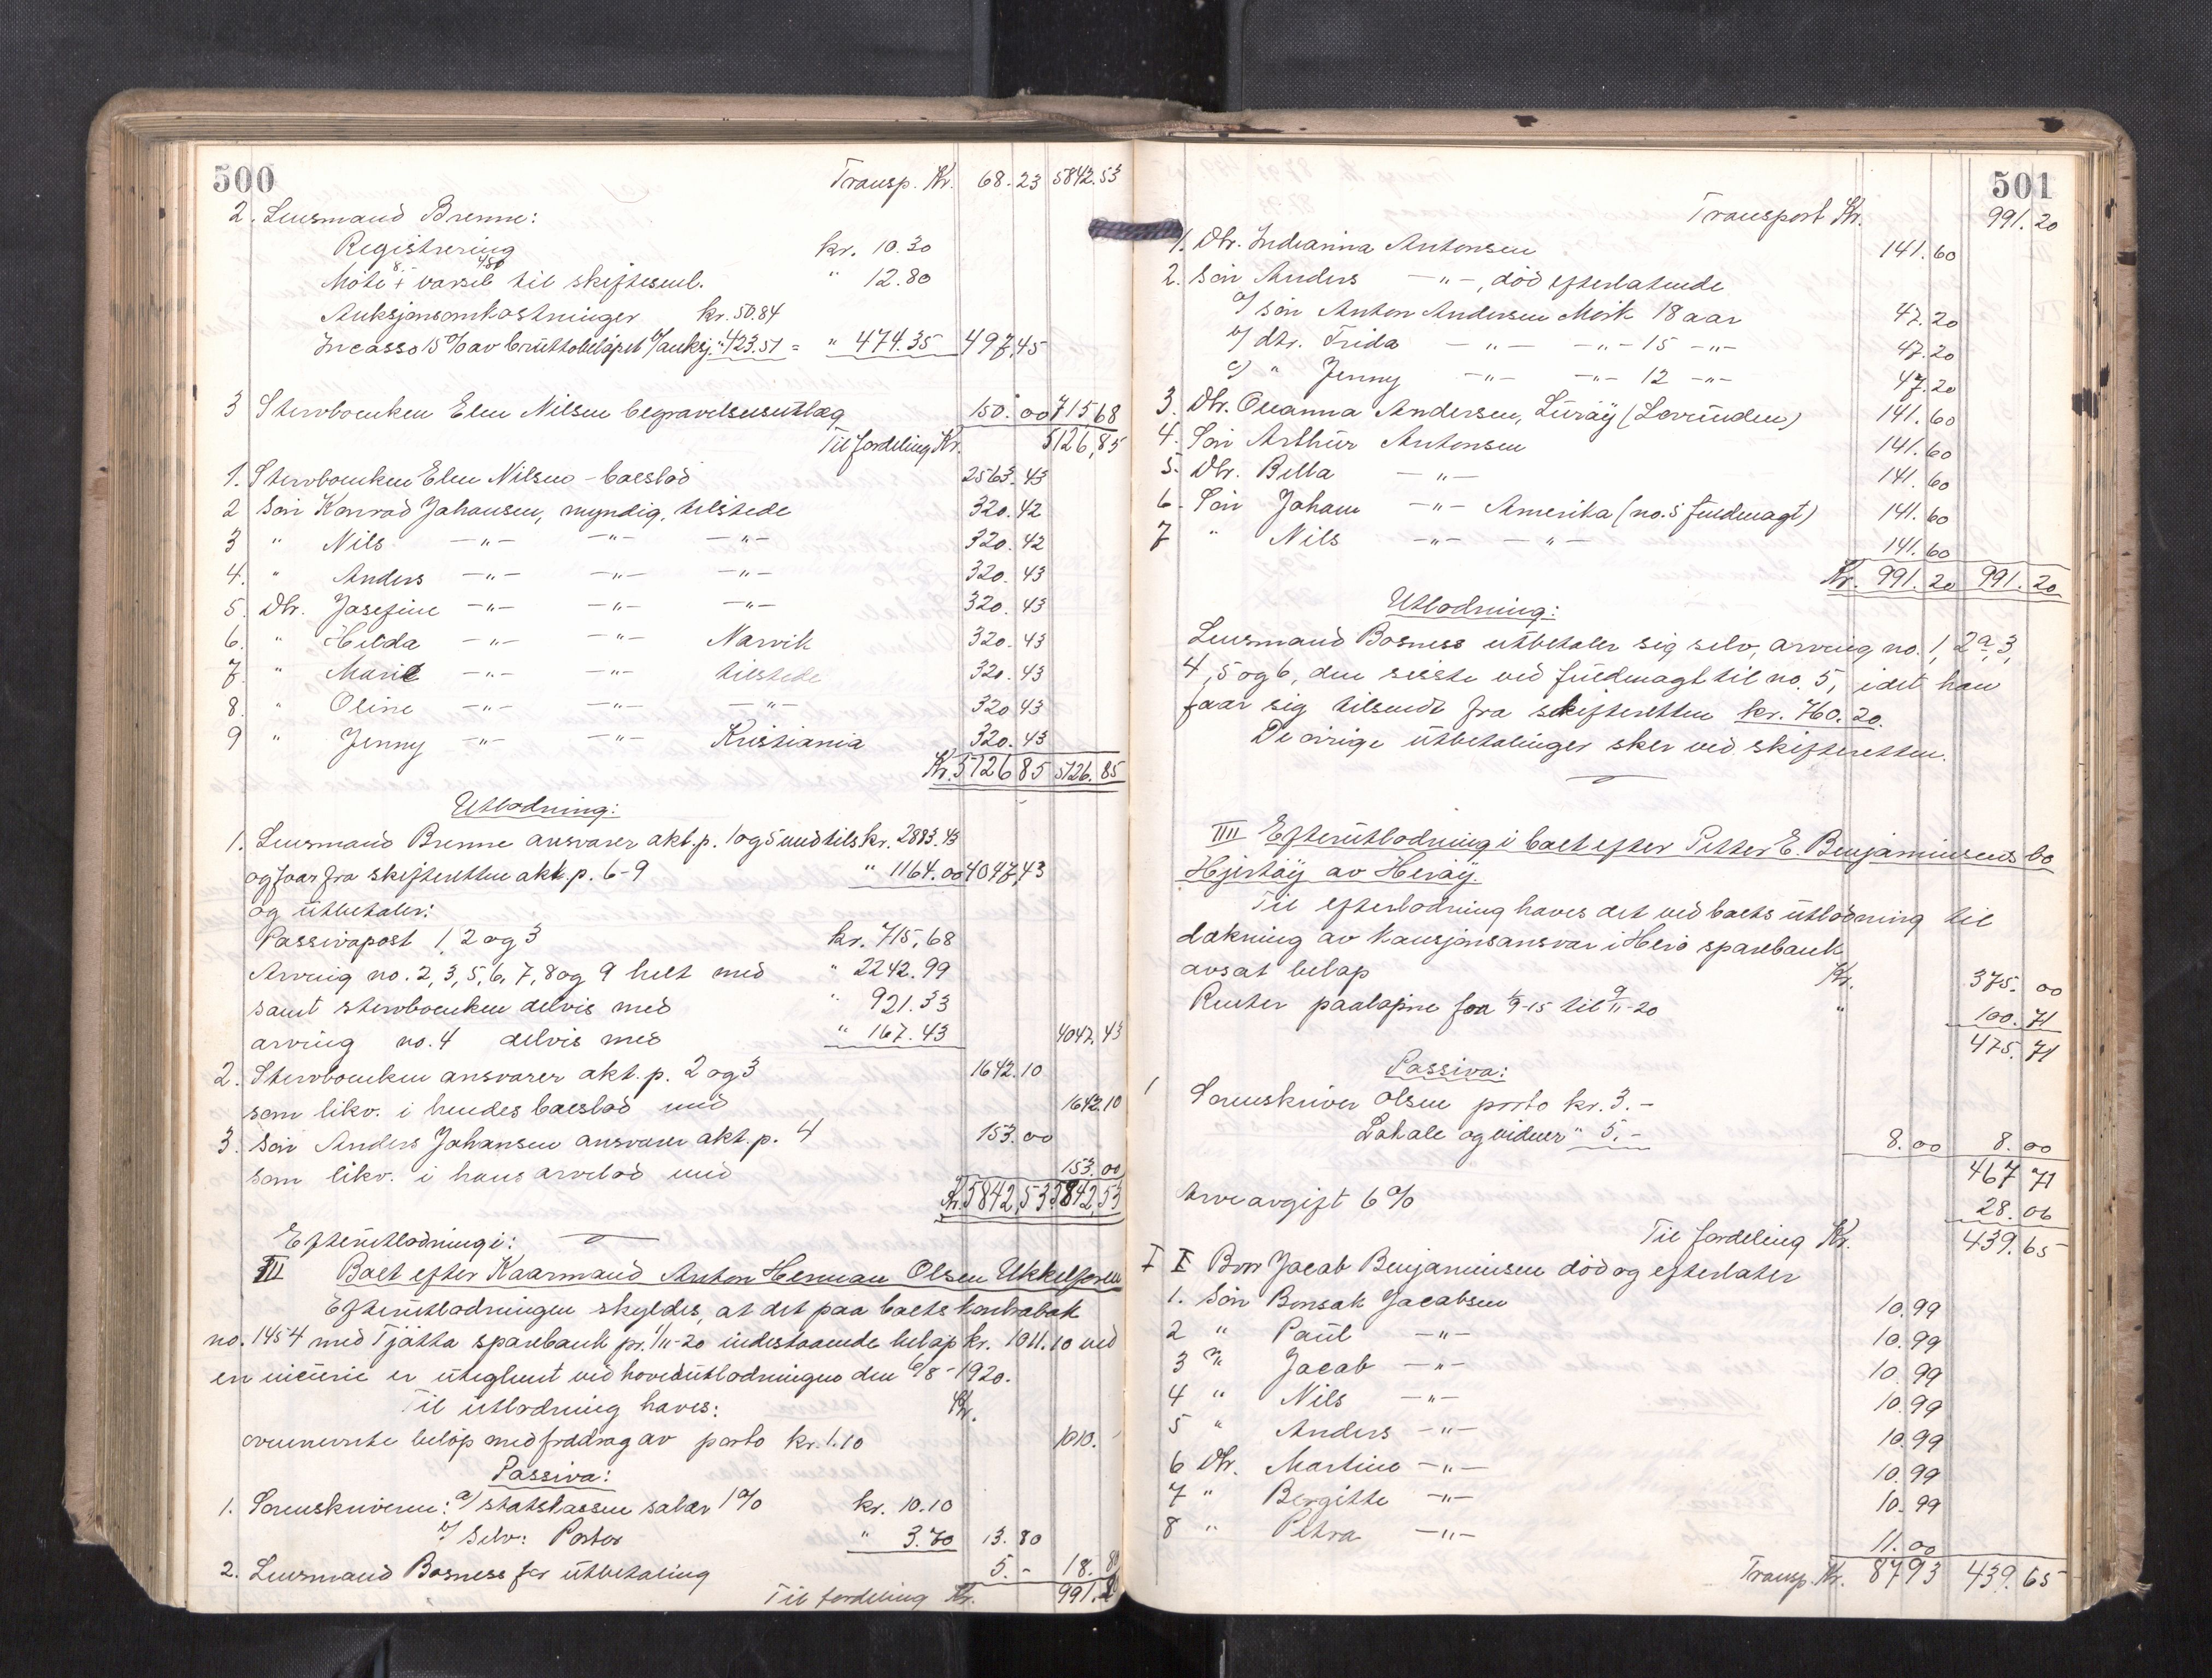 500
Transp. Kr. 68.23 5842.53
2. Lensmand Brenne:
Registrering kr. 10.30
8.- 4.80
Möte + varsel til skiftesaml. " 12.80
Auksjonsomkostninger kr. 50.84
Incasso 15 % av bruttobelöpet v/auksj. " 423.51 = " 474.35 497,45
3 Stervboenken Elen Nilsen begravelsesutlæg 150.00 715,68
Til fordeling Kr. 5126,85
1. Stervboenken Elen Nilsen - boeslod 2563.43
2 Sön Konrad Johansen, myndig, tilstede 320.42
3 " Nils -"- -"- -"- 320.42
4. " Anders -"- -"- -"- 320.43
5. Dtr. Josefine -"- -"- -"- 320.43
6. " Hilda -"- -"- Narvik 320.43
7. " Marie -"- -"- tilstede 320.43
8. " Oline -"- -"- -"- 320 43
9 " Jenny -"- -"- Kristiania 320.43
Kr. 5126 85 5126.85
Utlodning:
1. Lensmand Brenne ansvarer akt. p. 1 og 5 med tils kr. 2883.43
og faar fra skifteretten akt. p. 6-9 " 1164.00 4047,43
og utbetaler:
Passivapost 1, 2 og 3 kr. 715,68
Arving no. 2, 3, 5, 6, 7, 8 og 9 helt med " 2242.99
samt stervboenken delvis med " 921.33
arving no. 4 delvis med " 167.43 4047.43
2. Stervboenken ansvarer akt. p. 2 og 3 1642.10
som likv. i hendes boeslod med 1642.10
3. Sön Anders Johansen ansvarer akt. p. 4 153.00
som likv. i hans arvelod med 153.00
Kr. 5842,53 5842,53
Efterutlodning i:
III Boet efter Kaarmand Anton Herman Olsen Ukkelfjoren
Efterutlodningen skyldes, at det paa boets kontrabok
no. 1454 med Tjötta sparebank pr. 1/11-20 indestaaende belöp kr. 1011.10 ved
en incurie er uteglemt ved hovedutlodningen den 6/8-1920.
Til utlodning haves: Kr.
ovennevnte belöp med fradrag av porto kr. 1.10 1010.-
Passiva:
1. Sorenskriveren: a/ statskassen salær 1% kr. 10.10
b/ Selv: Portor " 3.70 13.80
2. Lensmand Bosness for utbetaling 5.- 18.80
Til fordeling Kr. 991.20
501
Transport Kr. 991.20
1. Dtr. Indianna Antonsen 141.60
2. Sön Anders -"-, död efterlatende
a/ sön Anton Andersen Mörk 18 aar 47.20
b/ dtr. Frida -"- -"- 15 -"- 47.20
c) " Jenny -"- -"- 12 -"- 47.20
3. Dtr. Oleanna Andersen, Luröy (Lovunden) 141.60
4. Sön Arthur Antonsen 141.60
5. Dtr. Bella -"- 141.60
6. Sön Johan -"- Amerika (no. 5 fuldmagt) 141.60
7 " Nils -"- -"- 141.60
Kr. 991.20 991.20
Utlodning:
Lensmand Bosness utbetaler sig selv, arving no. 1, 2a, 3,
4, 5 og 6, den sisste ved fuldmagt til no. 5, idet han
faar sig tilsendt fra skifteretten kr. 760.20.
De övrige utbetalinger sker ved skifteretten.
IIII Efterutlodning i boet efter Petter E. Benjaminsens bo
Hjertöy av Heröy.
Til efterlodning haves det ved boets utlodning til
dækning av kausjonsansvar i Herö sparebank
avsat belöp Kr. 375.00
Renter paalöpne fra 1/9-15 til 9/11-20 " 100.71
475.71
Passiva:
1 Sorenskriver Olsen porto kr. 3.-
Lokale og vidner " 5.- 8.00 8.00
467 71
Arveavgift 6% 28.06
Til fordeling Kr. 439.65
I Bror Jacob Benjaminsen död og efterlater
1. Sön Bonsak Jacobsen 10.99
2 " Paul -"- 10.99
3 " Jacob -"- 10.99
4 " Nils -"- 10.99
5 " Anders -"- 10.99
6 Dtr. Martine -"- 10.99
7 " Bergitte -"- 10.99
8 " Petra -"- 11.00
Transp. Kr. 87 93 439.65